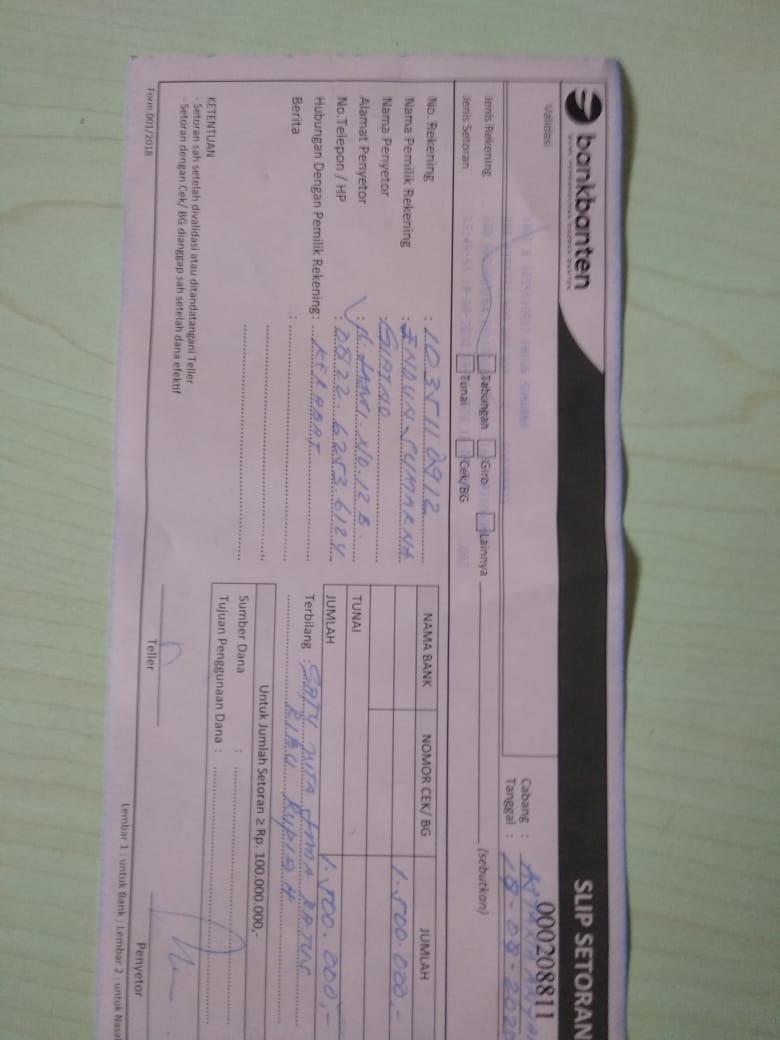 bankbanten
SLIP SETORAN
000208811
Validasi
Cabang :
Tanggal : 18-08-202
Jenis Rekening Tabungan Giro Lainnya (sebutkan)
Jenis Setoran Tunai Cek/BG
No. Rekening : 1035110912
Nama Pemilik Rekening : ENDUN SUMARNA
Nama Penyetor :
Alamat Penyetor : NO. 12 B.
No.Telepon / HP : 0822. 6253 6124
Hubungan Dengan Pemilik Rekening : KERABAT
Berita :
NAMA BANK NOMOR CEK/ BG JUMLAH
1.500.000,-
TUNAI
JUMLAH 1.500.000,-
Terbilang : SATU JUTA LIMA RATUS
RIBU RUPIAH
Untuk Jumlah Setoran ≥ Rp. 100.000.000,-
Sumber Dana :
Tujuan Penggunaan Dana :
KETENTUAN
- Setoran sah setelah divalidasi atau ditandatangani Teller
- Setoran dengan Cek/ BG dianggap sah setelah dana efektif
Teller
Penyetor
Form.001/2018
Lembar 1 : untuk Bank ; Lembar 2 : untuk Nasa